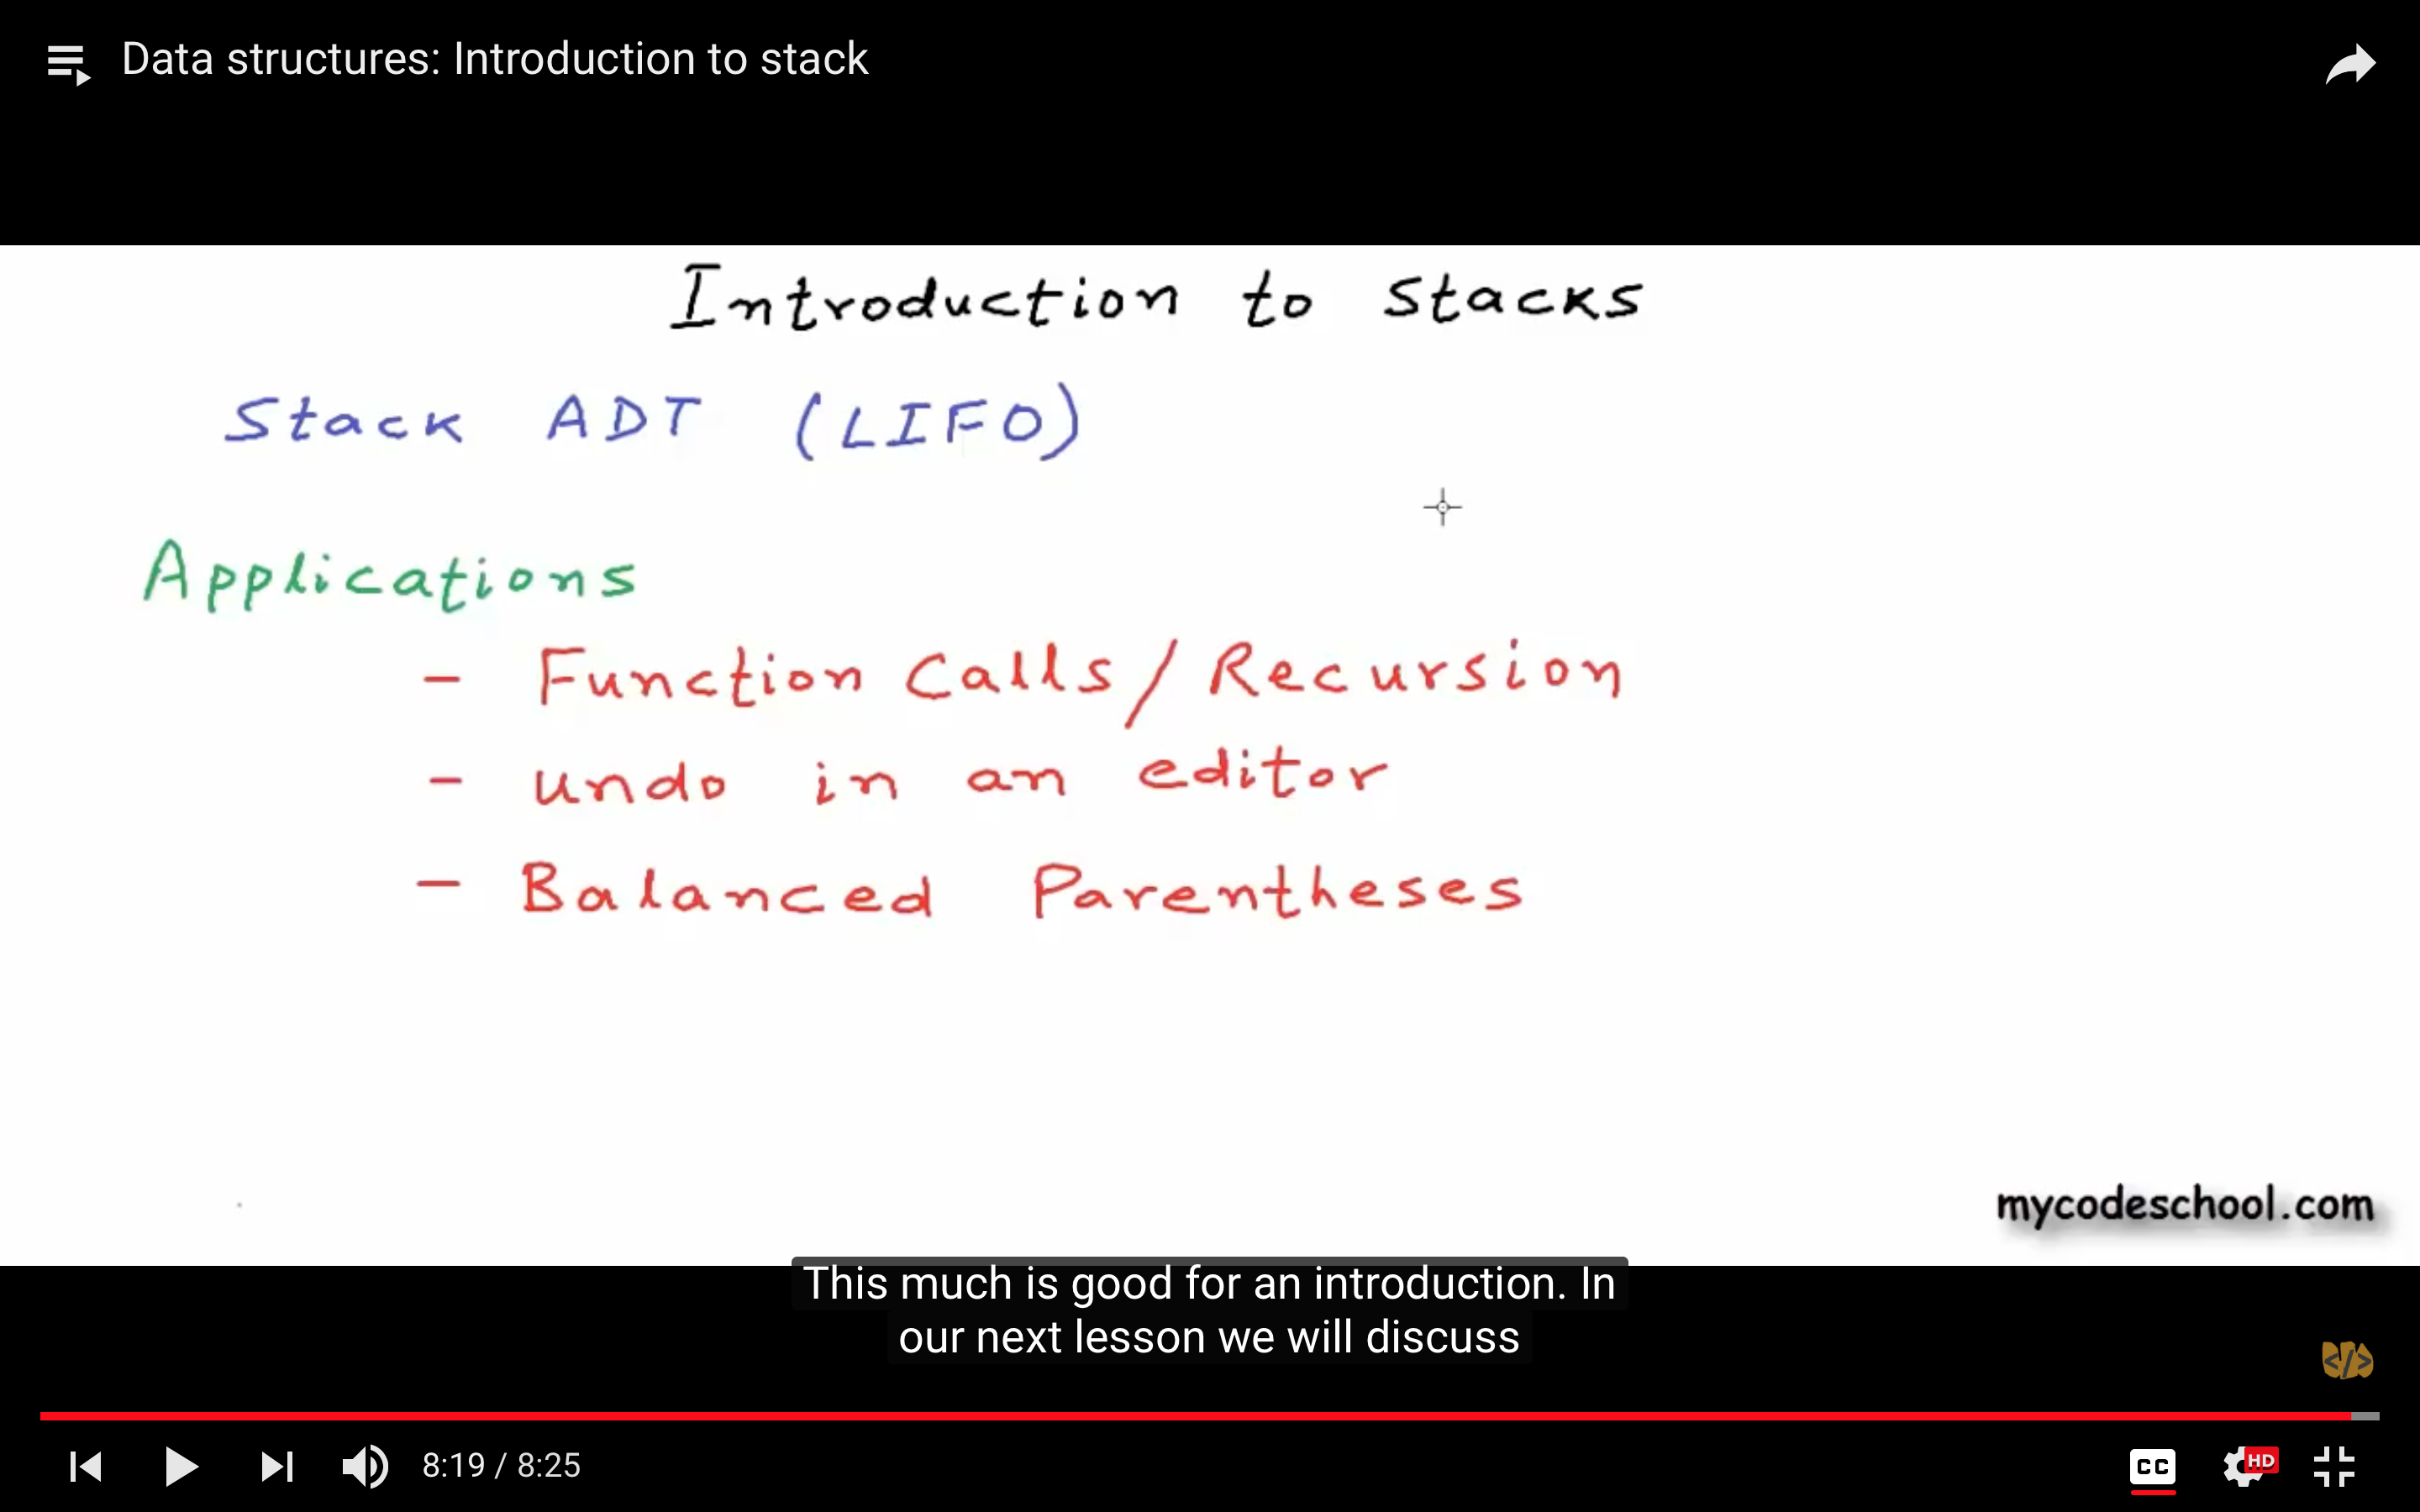 Data structures: Introduction to stack
Introduction to stacks
Stack ADT (LIFO)
Applications
- Function Calls/Recursion
- undo in an editor
- Balanced Parentheses
mycodeschool.com
This much is good for an introduction. In
our next lesson we will discuss
</>
8:19 / 8:25
CC
HD